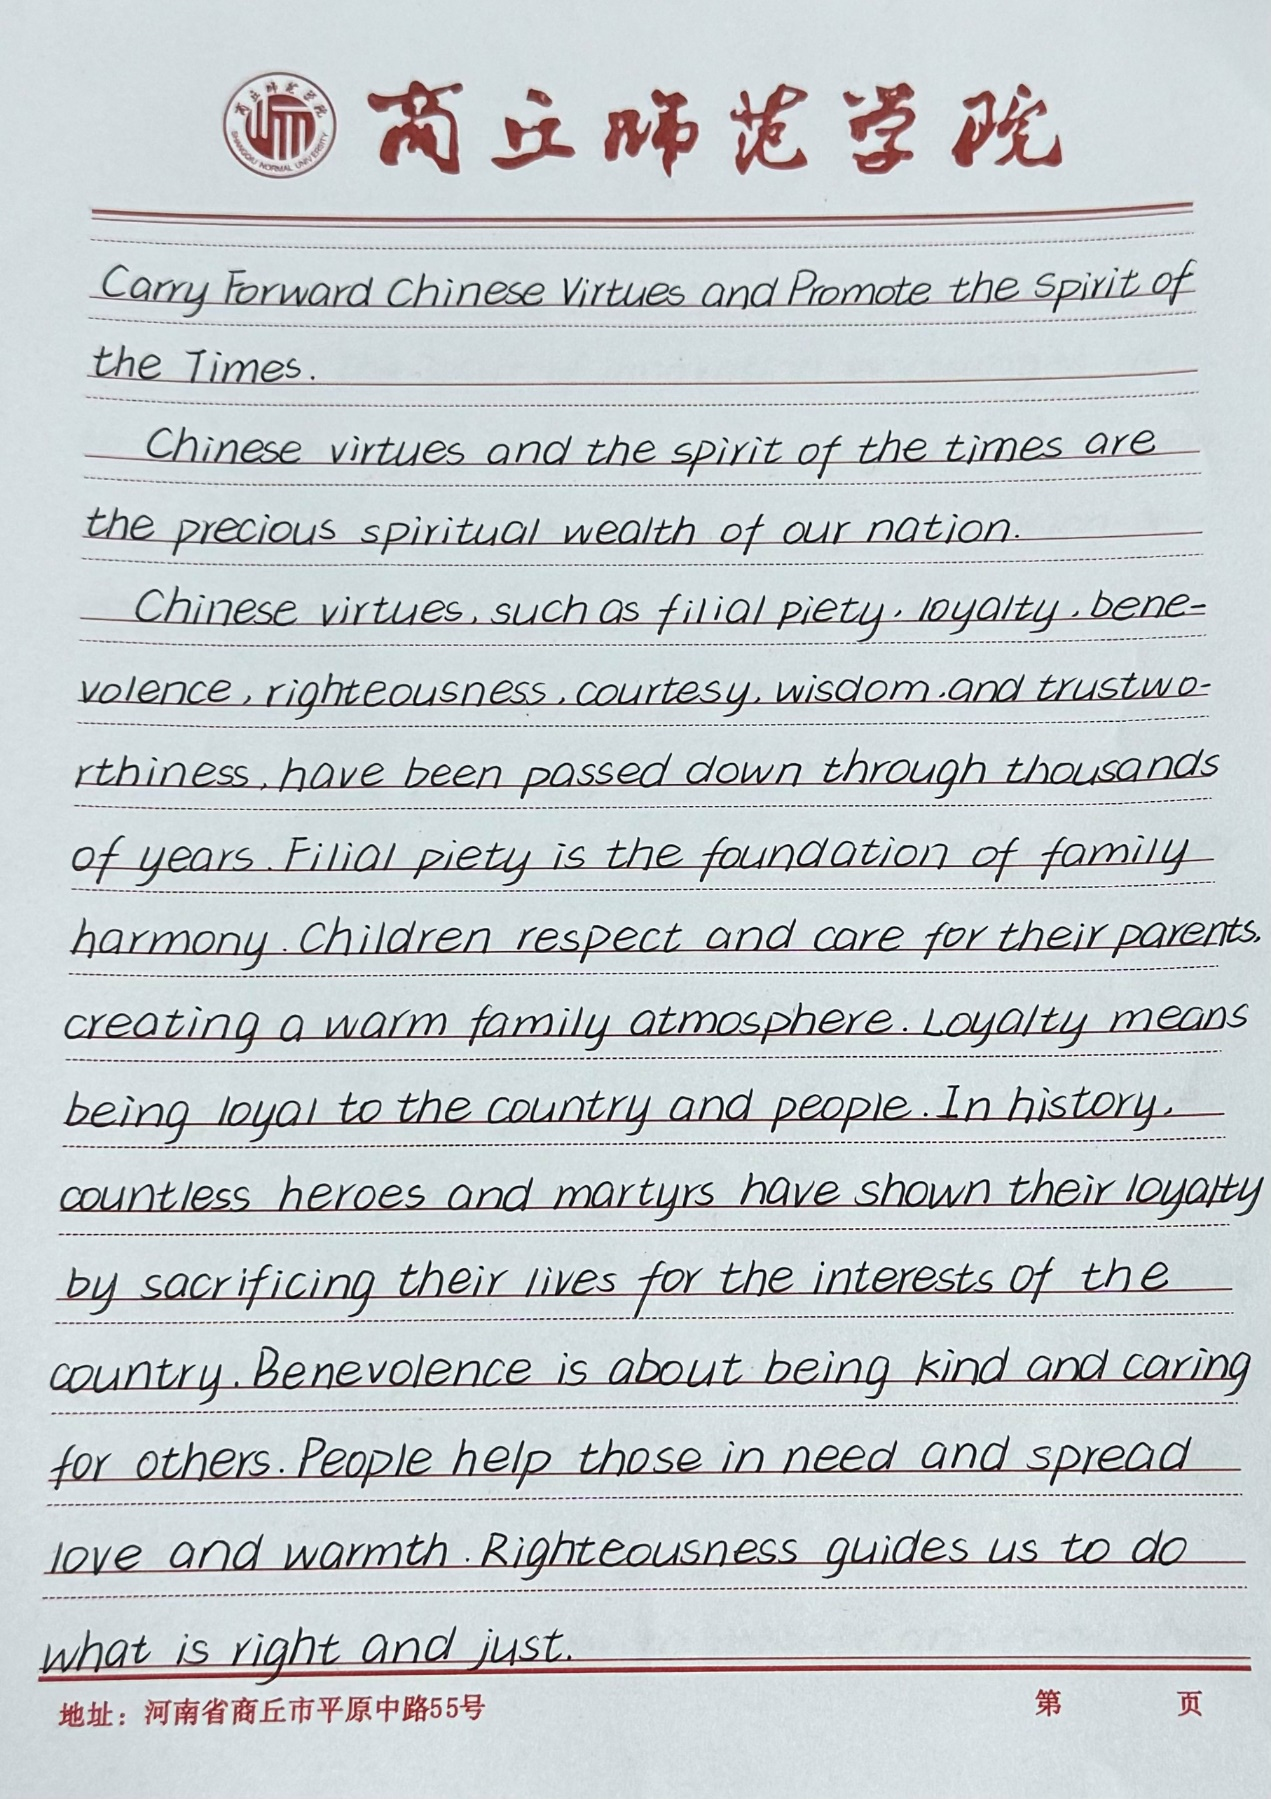 商丘师范学院
SHANGQIU NORMAL UNIVERSITY
Carry Forward Chinese Virtues and Promote the Spirit of
the Times.
Chinese virtues and the spirit of the times are
the precious spiritual wealth of our nation.
Chinese virtues, such as filial piety, loyalty, bene-
volence, righteousness, courtesy, wisdom, and trustwo-
rthiness, have been passed down through thousands
of years. Filial piety is the foundation of family
harmony. Children respect and care for their parents,
creating a warm family atmosphere. Loyalty means
being loyal to the country and people. In history,
countless heroes and martyrs have shown their loyalty
by sacrificing their lives for the interests of the
country. Benevolence is about being kind and caring
for others. People help those in need and spread
love and warmth. Righteousness guides us to do
what is right and just.
地址：河南省商丘市平原中路55号 第 页